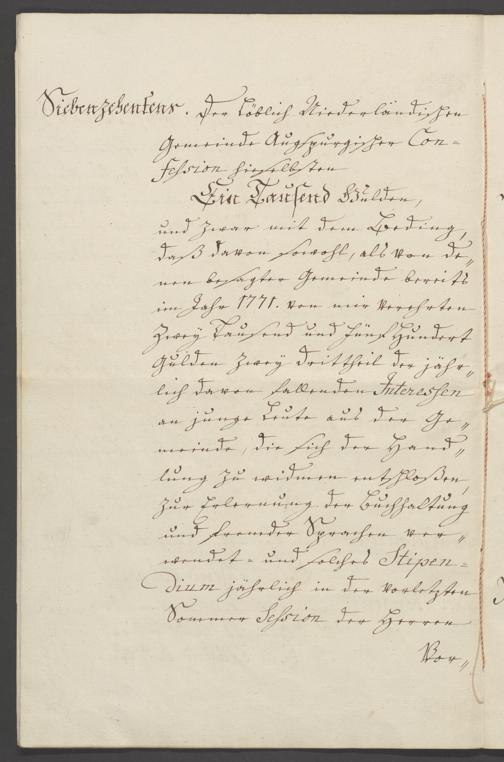 Siebenzehentens. Der Löblich Niederländischen
Gemeinde Augspurgischer Con-
fession hieselbsten
Ein Tausend Gulden,
und zwar mit dem Beding,
daß davon sowohl, als von de„
nen besagter Gemeinde bereits
im Jahr 1771. von mir verehrten
Zwey Tausend und fünf Hundert
Gulden zwey drittheil der jähr„
lich davon fallenden Interessen
an junge Leute aus der Ge„
meinde, die sich der Hand„
lung zu widmen entschloßen,
zur Erlernung der Buchhaltung
und fremder Sprachen ver„
wendet = und solches Stipen=
dium jährlich in der vorletzten
Sommer Session der Herren
Vor„